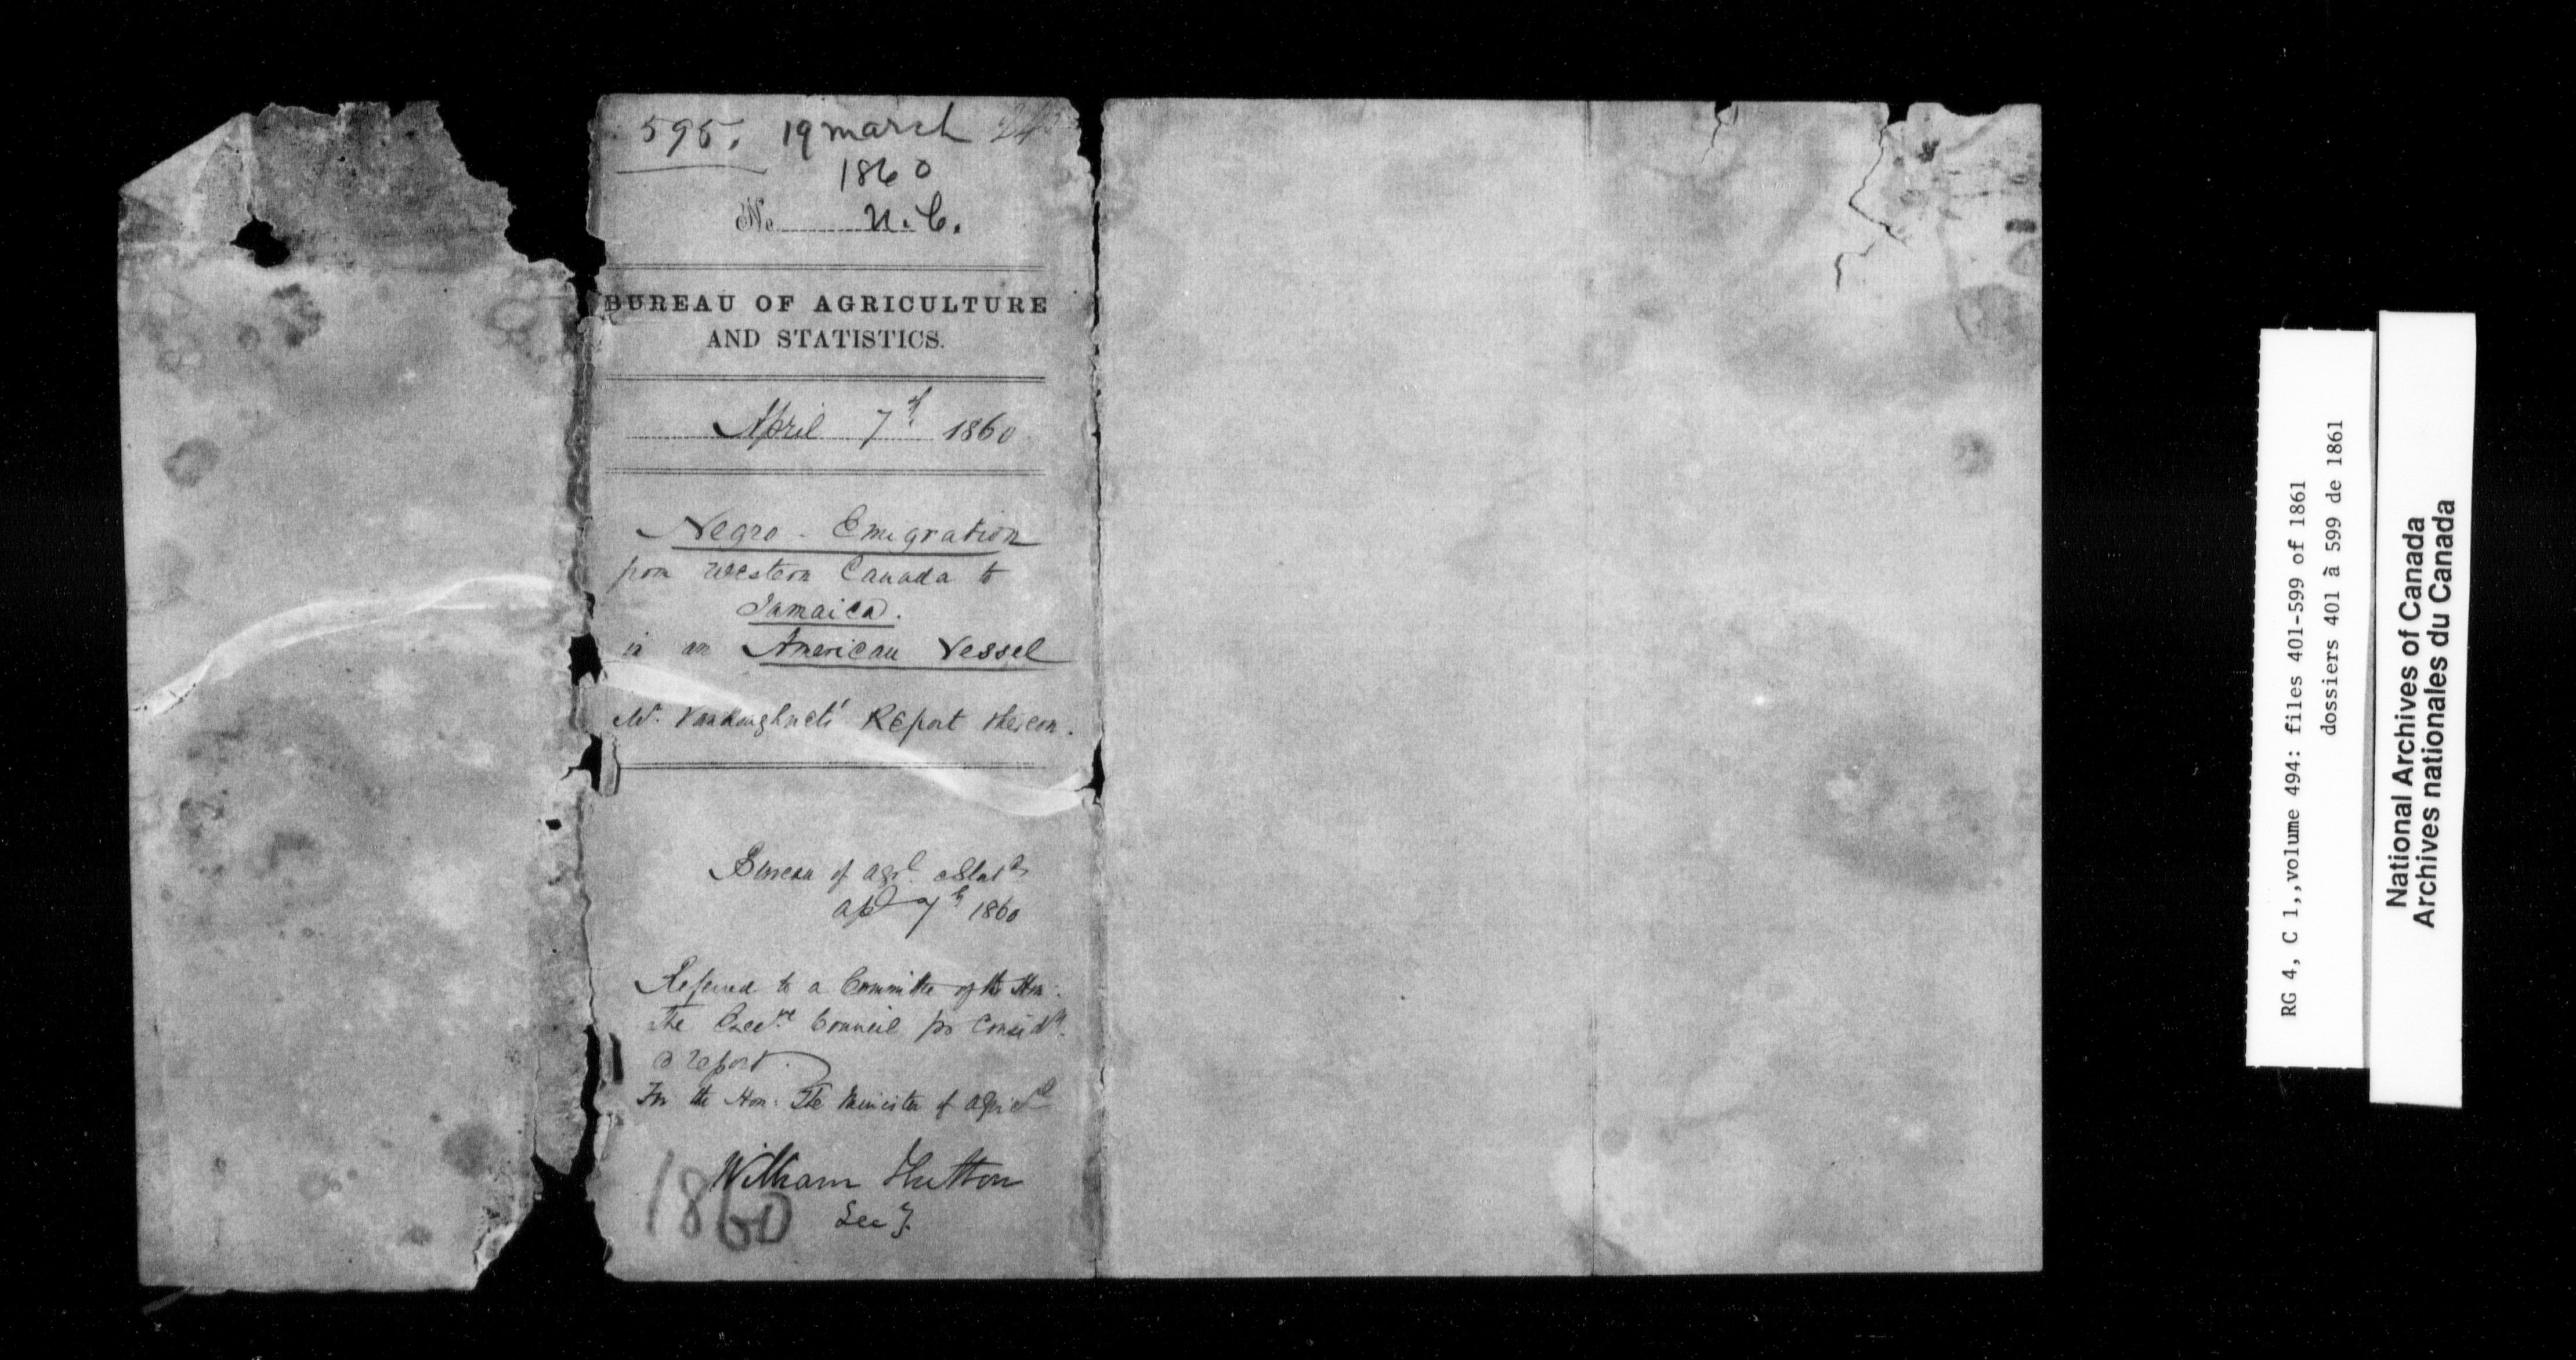 595. 19 march
1860
No. N.C.
BUREAU OF AGRICULTURE
AND STATISTICS.
April 7th 1860
Negro - Emigration
from Western Canada to
Jamaica.
in an American Vessel
Mr. Vankoughnets' Report thereon.
Bureau of Agrl. & Stats
Apl 7th 1860
Referred to a Committee of the Hon:
The Execve Council for Considn.
& report.
For the Hon: The Minister of Agricl
William Hutton
Secy.
1860
RG 4, C 1,,volume 494: files 401-599 of 1861
dossiers 401 à 599 de 1861
National Archives of Canada
Archives nationales du Canada